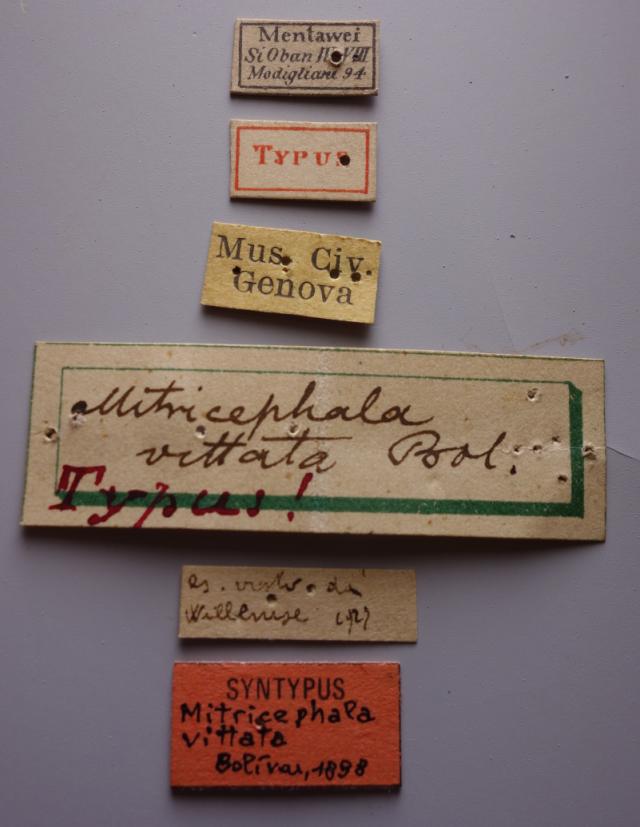 Mentawei
Si Oban IV-VIII
Modigliani 94
TYPUS
Mus. Civ.
Genova
Mitricephala
vittata Bol.
Typus!
es. visto da
Willemse
SYNTYPUS
Mitricephala
vittata
Bolívar, 1898